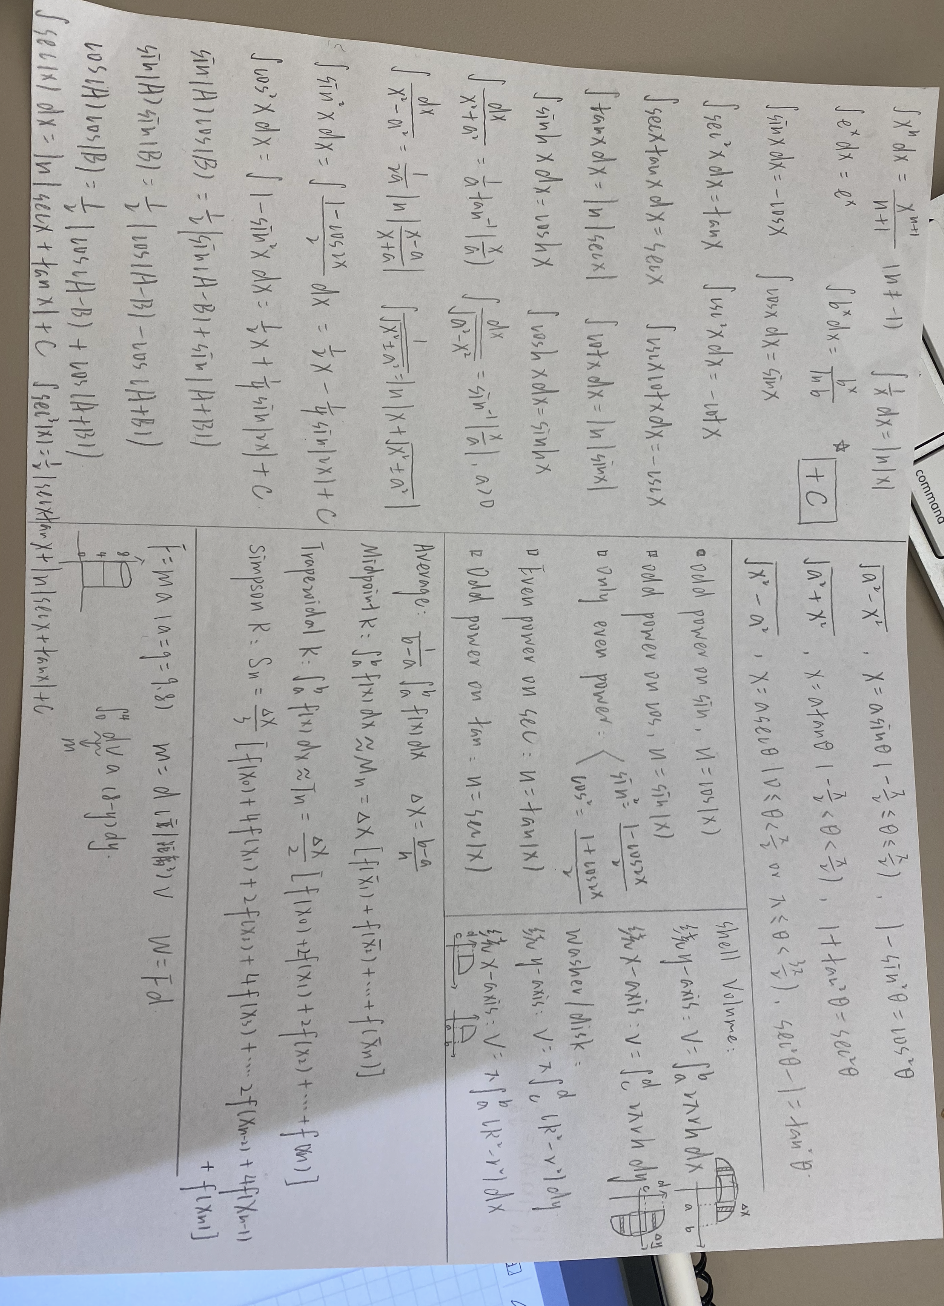 ∫ xⁿ dx = xⁿ⁺¹/(n+1) (n≠-1) ∫ 1/x dx = ln|x|
∫ eˣ dx = eˣ ∫ bˣ dx = bˣ/ln b ☆ +C
∫ sinx dx = -cosx ∫ cosx dx = sinx
∫ sec²x dx = tanx ∫ csc²x dx = -cotx
∫ secxtanx dx = secx ∫ cscxcotx dx = -cscx
∫ tanx dx = ln|secx| ∫ cotx dx = ln|sinx|
∫ sinh x dx = coshx ∫ cosh x dx = sinhx
∫ dx/(x²+a²) = 1/a tan⁻¹(x/a) ∫ dx/√(a²-x²) = sin⁻¹(x/a), a>0
∫ dx/(x²-a²) = 1/2a ln|(x-a)/(x+a)| ∫ 1/√(x²+a²) = ln|x+√(x²+a²)|
∫ sin²x dx = ∫ (1-cos2x)/2 dx = 1/2 x - 1/4 sin(2x) + C
∫ cos²x dx = ∫ 1-sin²x dx = 1/2 x + 1/4 sin(2x) + C
sin(A)cos(B) = 1/2 [sin(A-B)+sin(A+B)]
sin(A)sin(B) = 1/2 [cos(A-B)-cos(A+B)]
cos(A)cos(B) = 1/2 [cos(A-B)+cos(A+B)]
∫ sec(x) dx = ln|secx + tanx| + C ∫ sec³(x) = 1/2 |secxtanx + ln|secx + tanx| + C
√(a²-x²), x = a sinθ (-π/2 ≤ θ ≤ π/2), 1 - sin²θ = cos²θ
√(a²+x²), x = atanθ (-π/2 < θ < π/2), 1 + tan²θ = sec²θ
√(x²-a²), x = asecθ (0 ≤ θ < π/2 or π ≤ θ < 3π/2), sec²θ - 1 = tan²θ.
▫ odd power on sin, u = cos(x)
▫ odd power on cos, u = sin(x)
▫ only even power: < sin² = (1-cos2x)/2
cos² = (1+cos2x)/2
▫ Even power on sec: u = tan(x)
▫ Odd power on tan: u = sec(x)
Shell Volume:
y-axis: V = ∫ₐᵇ 2πrh dx
a b Δx
x-axis: V = ∫꜀ᵈ 2πrh dy
d c Δy
washer/disk:
y-axis: V = π ∫꜀ᵈ (R²-r²) dy
x-axis: V = π ∫ₐᵇ (R²-r²) dx
d c
a b
Average: 1/(b-a) ∫ₐᵇ f(x) dx Δx = (b-a)/n
Midpoint R: ∫ₐᵇ f(x) dx ≈ Mn = Δx [f(x̄₁) + f(x̄₂) + ..... + f(x̄n)]
Trapezoidal R: ∫ₐᵇ f(x) dx ≈ Tn = Δx/2 [f(x₀) + 2f(x₁) + 2f(x₂) + ..... + f(xn)]
Simpson R: Sn = Δx/3 [f(x₀) + 4f(x₁) + 2f(x₂) + 4f(x₃) + ..... 2f(xn-2) + 4f(xn-1)
+ f(xn)]
F = ma (a = g = 9.8) m = d V W = Fd
8
4
0
∫₀⁴ dV a (8-y) dy.
m
command